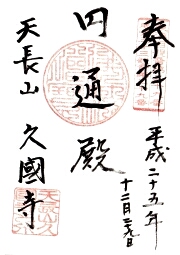 奉拝
平成二十五年
十二月二九日
円通殿
天長山
久國寺